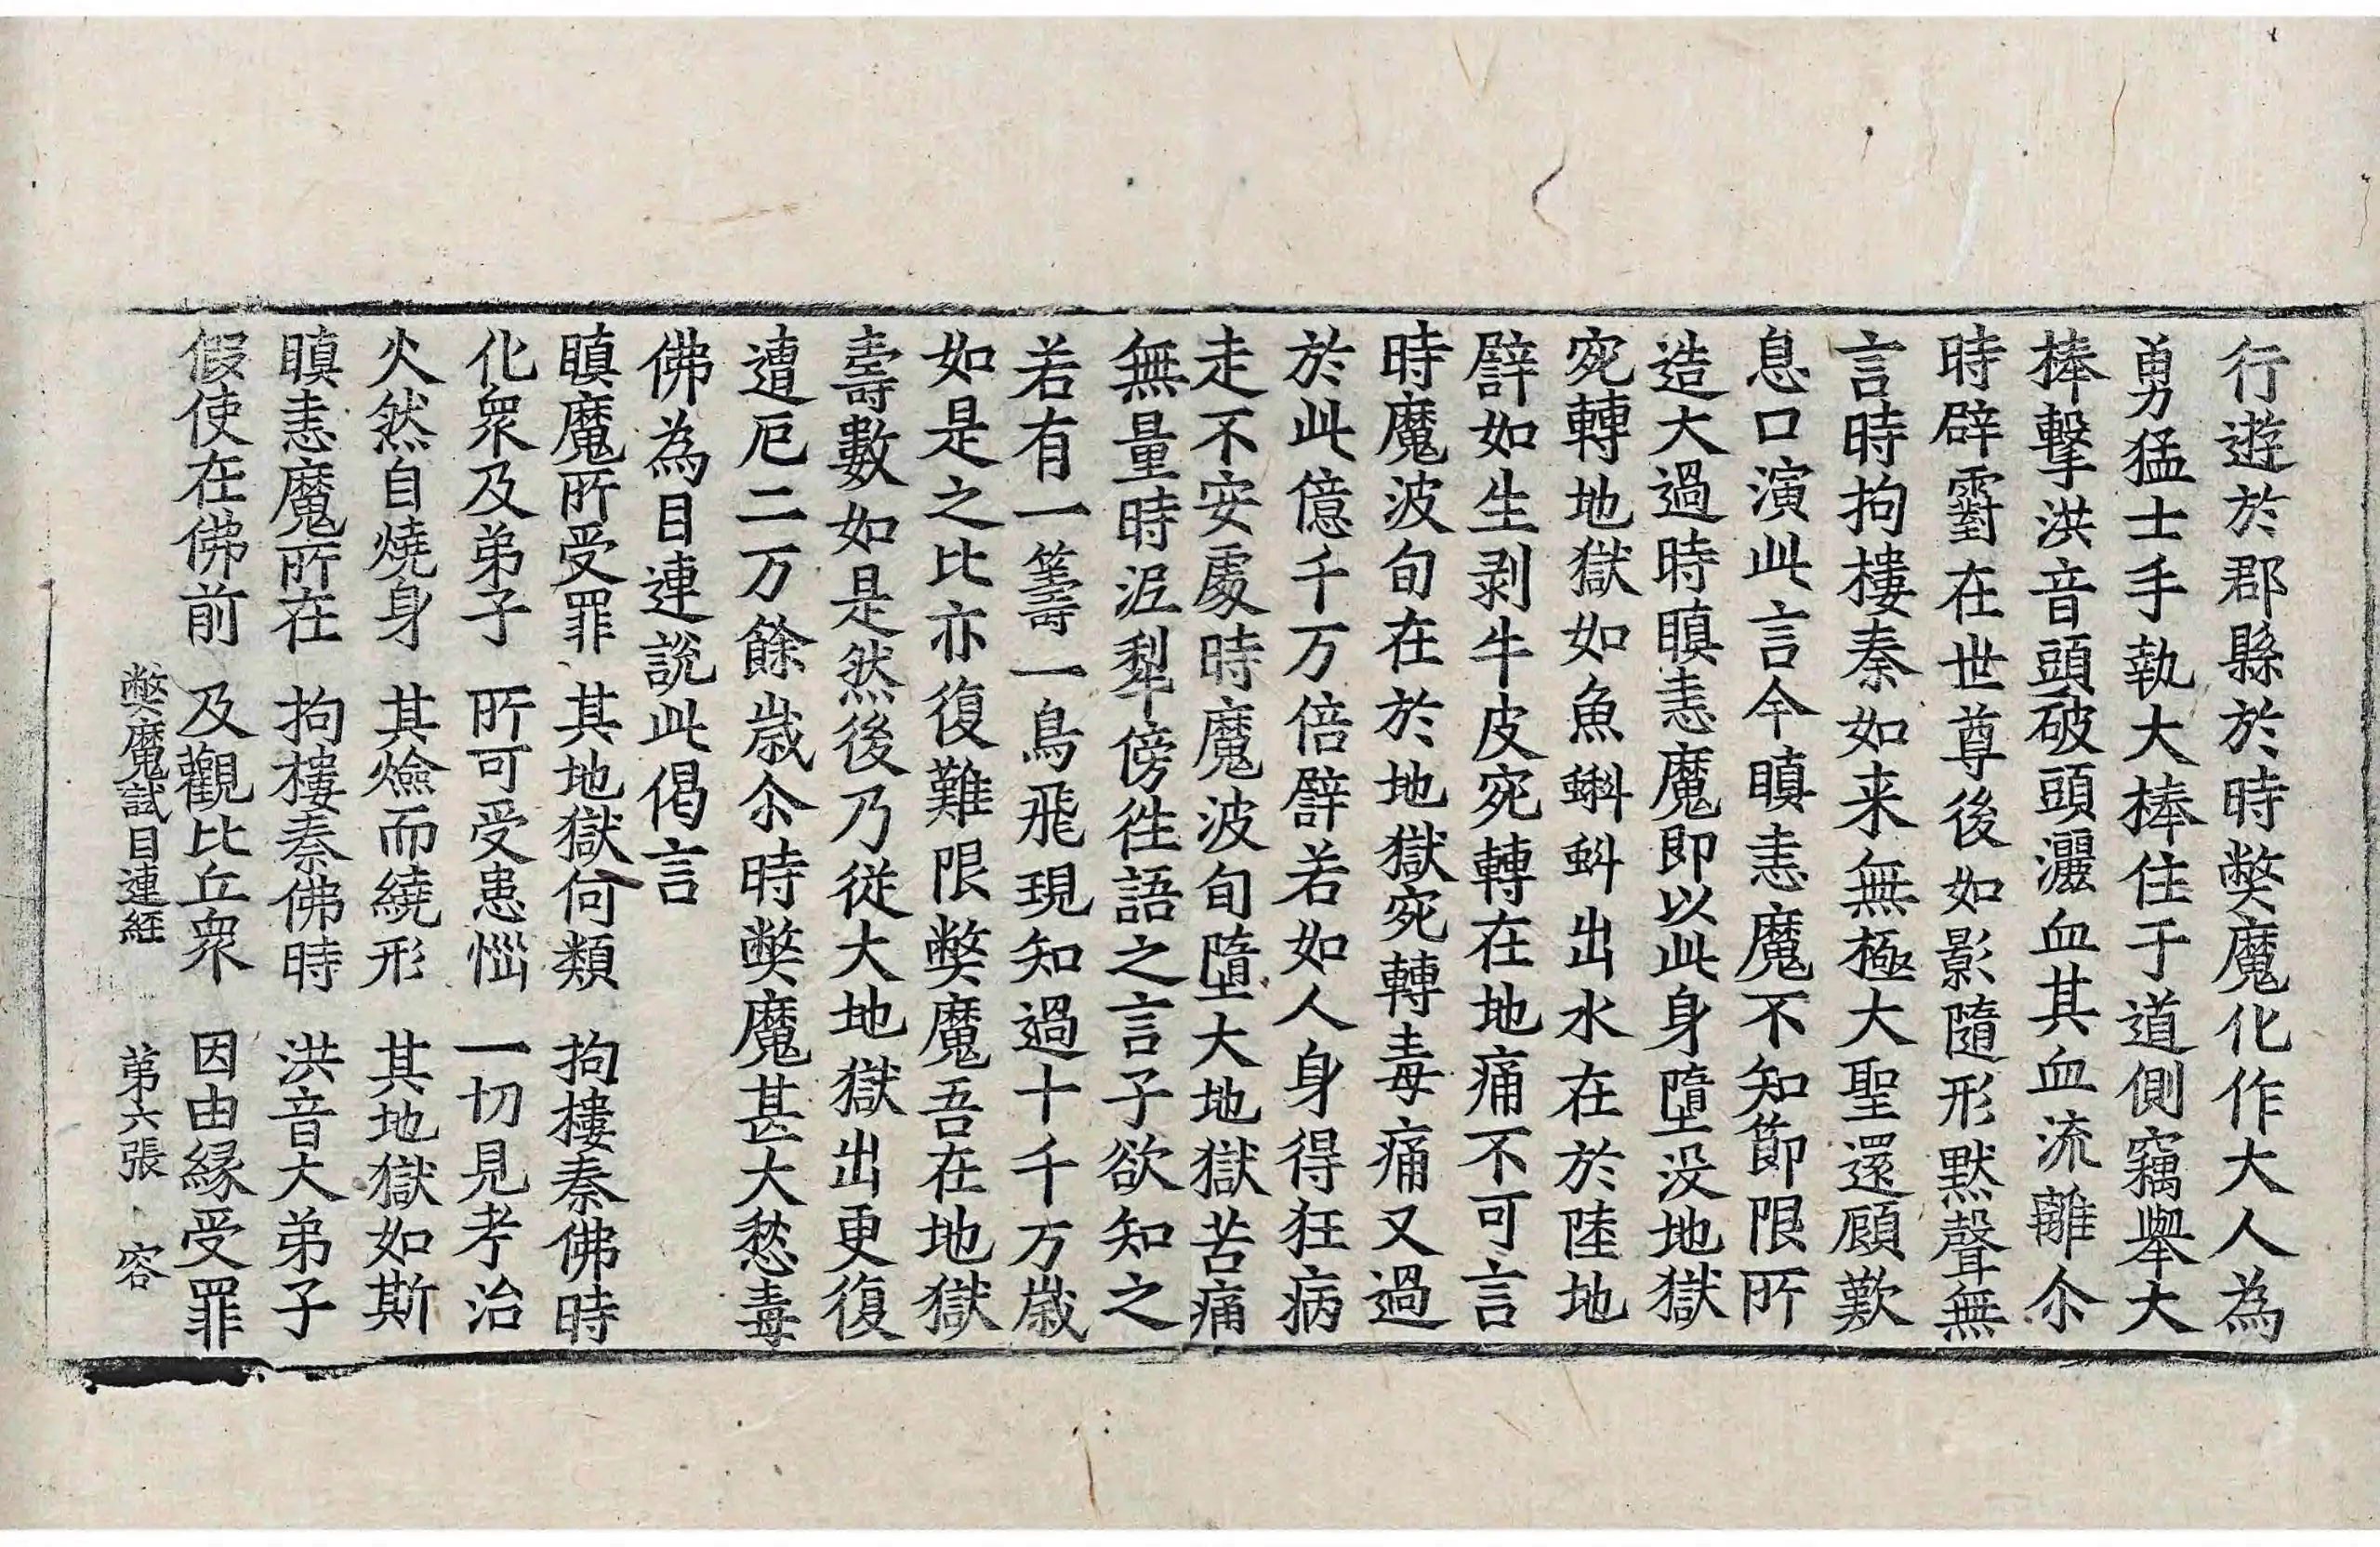 行遊於郡縣於時弊魔化作大人為
勇猛士手執大棒住于道側竊舉大
棒擊洪音頭破頭灑血其血流離尒
時辟對在世尊後如影隨形默聲無
言時拘樓秦如来無極大聖還顧歎
息口演此言今瞋恚魔不知節限所
造大過時瞋恚魔即以此身墮没地獄
宛轉地獄如魚蝌蚪出水在於陸地
譬如生剥牛皮宛轉在地痛不可言
時魔波旬在於地獄宛轉毒痛又過
於此億千万倍譬若如人身得狂病
走不安處時魔波旬墮大地獄苦痛
無量時泥犁傍徃語之言子欲知之
若有一籌一鳥飛現知過十千万歲
如是之比亦復難限弊魔吾在地獄
壽數如是然後乃從大地獄出更復
遭厄二万餘歲尒時弊魔甚大愁毒
佛為目連說此偈言
瞋魔所受罪　其地獄何類　拘樓秦佛時
化衆及弟子　所可受患惱　一切見考治
火然自燒身　其燄而繞形　其地獄如斯
瞋恚魔所在　拘樓秦佛時　洪音大弟子
假使在佛前　及觀比丘衆　因由緣受罪
弊魔試目連經　第六張　容